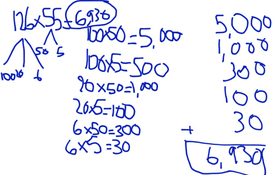 126×55=6930
100 20 6 50 5
100×50=5,000
100×5=500
20×50=1,000
20×5=100
6×50=300
6×5=30
5,000
1,000
300
100
+ 30
6,930